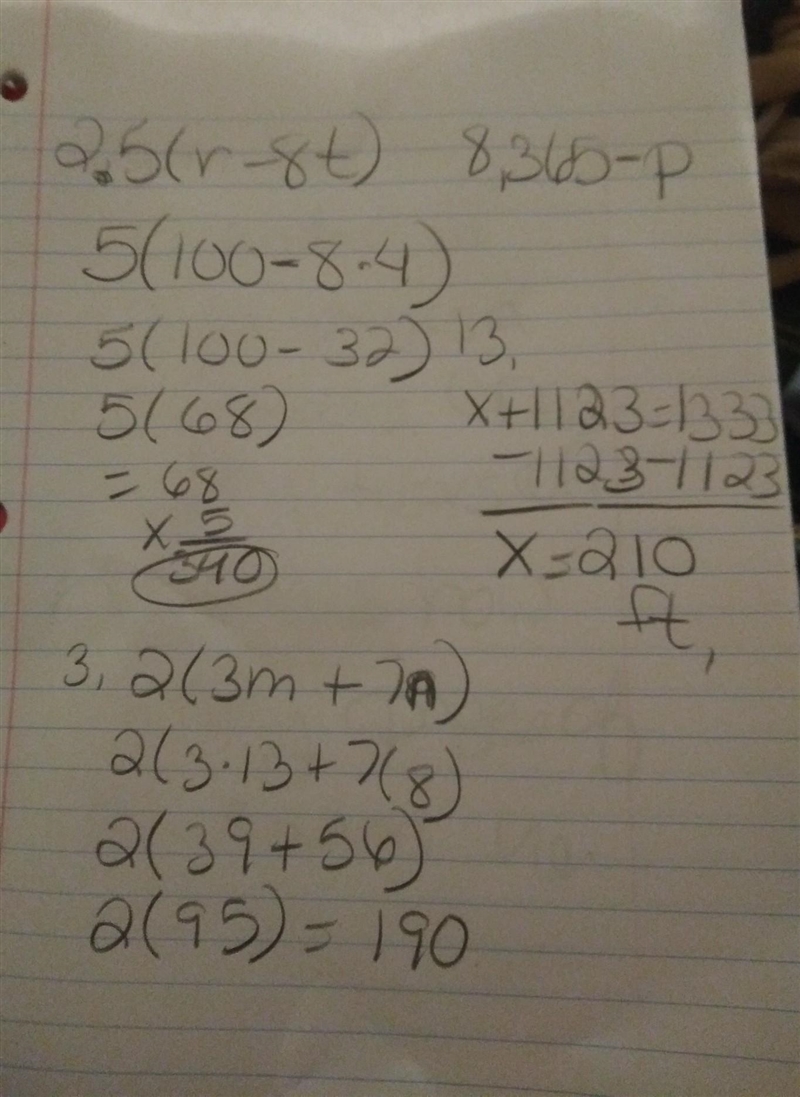 2. 5(r-8t)
5(100-8·4)
5(100-32)
5(68)
= 68
x 5
340
8, 365-p
13,
x+1123=1333
-1123-1123
x=210
ft,
3, 2(3m+7n)
2(3·13+7(8)
2(39+56)
2(95)=190